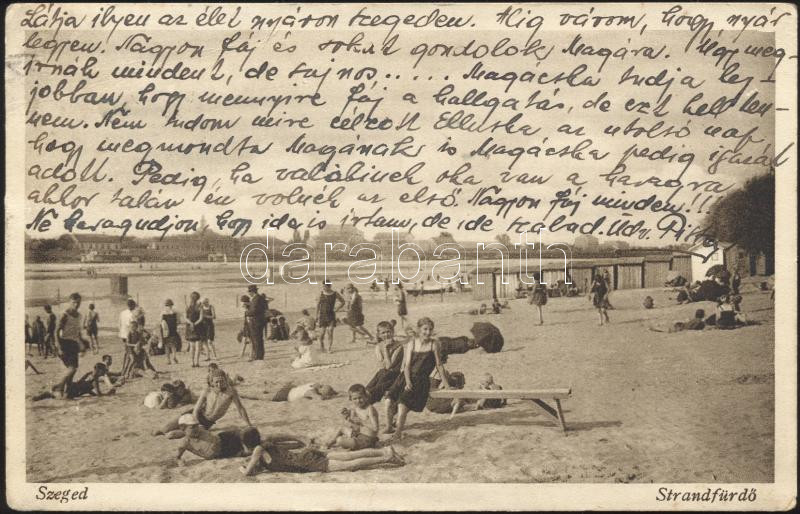 Látja ilyen az élet nyáron szegeden. Alig várom, hogy nyár
legyen. Nagyon fáj és sokat gondolok Magára. Úgy meg-
írnák mindent, de sajnos..... Magácska tudja leg-
jobban, hogy mennyire fáj a hallgatás, de ezt kell ten-
nem. Nem tudom mire célzott Elluska az utolsó nap
hogy megmondta Magának is Magácska pedig igazat
adott. Pedig, ha valakinek oka van a haragra
akkor talán én volnék az első. Nagyon fáj minden!!!
Ne haragudjon hogy ide is írtam, de ide szabad. Üdv.
darabanth
Szeged
Strandfürdő